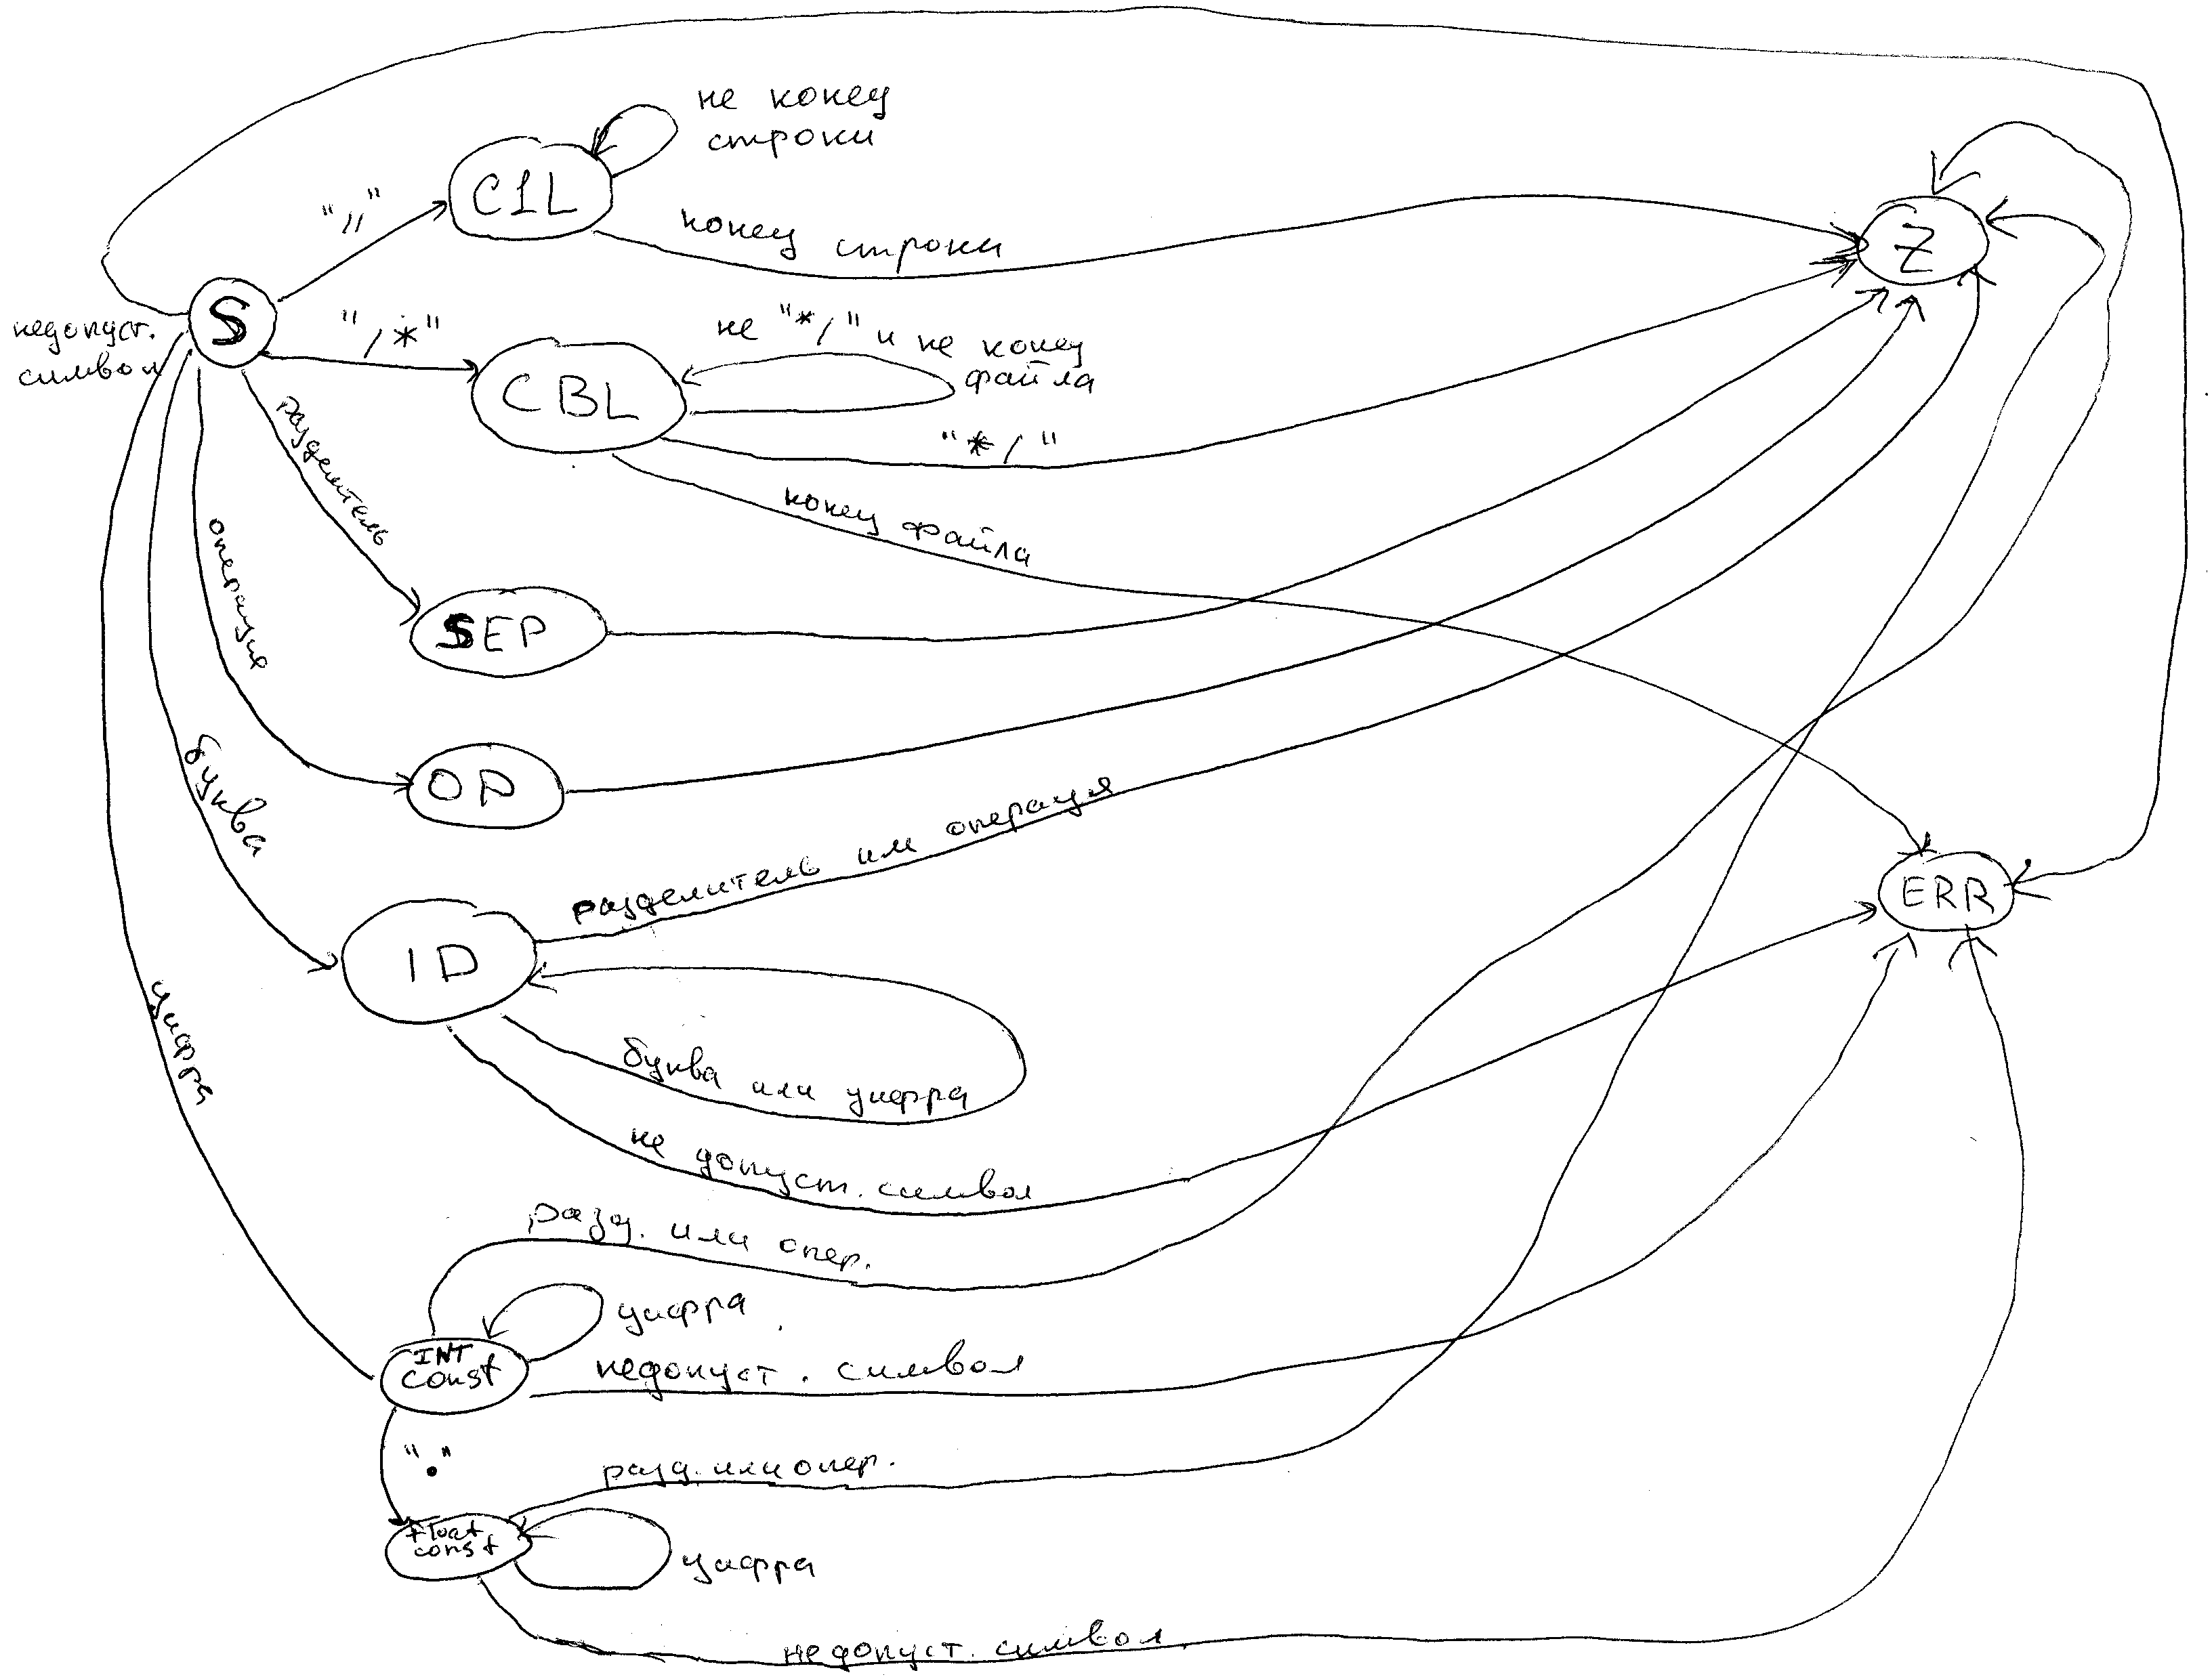 не конец
строки
C1L
"//"
конец строки
Z
S
недопуст.
символ
"/*"
не "*/" и не конец
файла
CBL
"*/"
разделитель
конец файла
операция
SEP
OP
буква
разделитель или операция
ERR
ID
цифра
буква или цифра
не допуст. символ
разд. или опер.
цифра
INT
const
недопуст. символ
"."
разд. или опер.
float
const
цифра
недопуст. символ